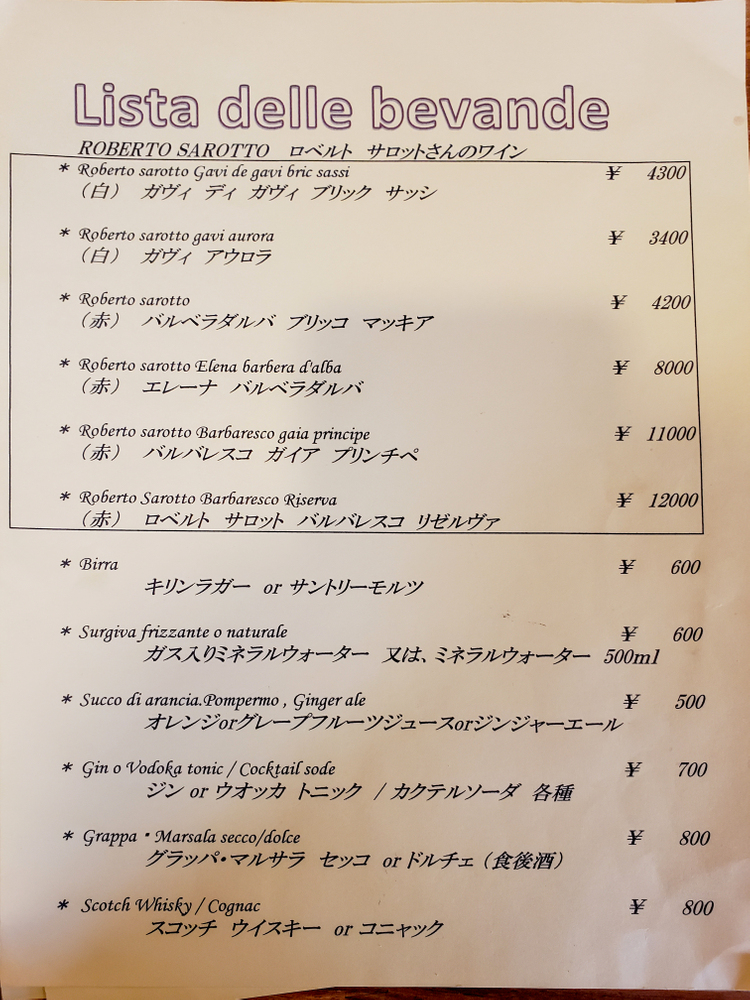 Lista delle bevande
ROBERTO SAROTTO ロベルト サロットさんのワイン
* Roberto sarotto Gavi de gavi bric sassi ¥ 4300
（白） ガヴィ ディ ガヴィ ブリック サッシ
* Roberto sarotto gavi aurora ¥ 3400
（白） ガヴィ アウロラ
* Roberto sarotto ¥ 4200
（赤） バルベラダルバ ブリッコ マッキア
* Roberto sarotto Elena barbera d'alba ¥ 8000
（赤） エレーナ バルベラダルバ
* Roberto sarotto Barbaresco gaia principe ¥ 11000
（赤） バルバレスコ ガイア プリンチペ
* Roberto Sarotto Barbaresco Riserva ¥ 12000
（赤） ロベルト サロット バルバレスコ リゼルヴァ
* Birra ¥ 600
キリンラガー or サントリーモルツ
* Surgiva frizzante o naturale ¥ 600
ガス入りミネラルウォーター 又は、ミネラルウォーター 500ml
* Succo di arancia.Pompermo , Ginger ale ¥ 500
オレンジorグレープフルーツジュースorジンジャーエール
* Gin o Vodoka tonic / Cocktail sode ¥ 700
ジン or ウオッカ トニック / カクテルソーダ 各種
* Grappa・Marsala secco/dolce ¥ 800
グラッパ・マルサラ セッコ or ドルチェ（食後酒）
* Scotch Whisky / Cognac ¥ 800
スコッチ ウイスキー or コニャック